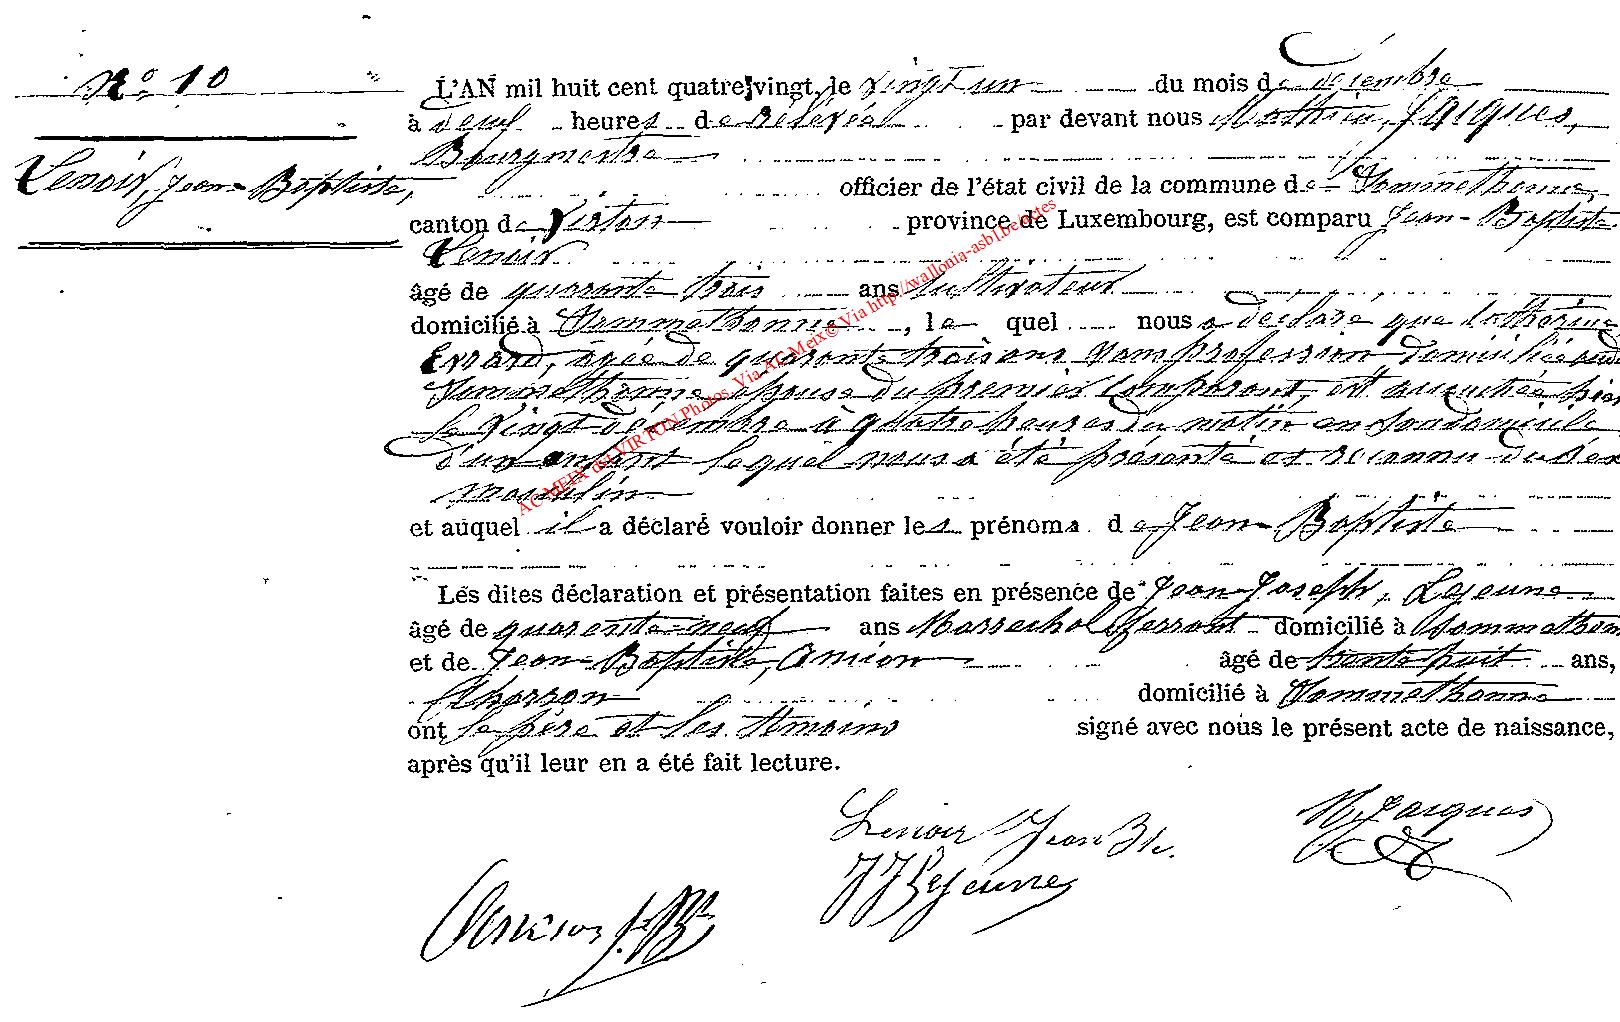 N° 10
Lenoir, Jean-Baptiste,
L'AN mil huit cent quatre-vingt, le vingt un du mois de décembre
à deux heures de relevée par devant nous Mathieu, Jacques,
Bourgmestre
officier de l'état civil de la commune de Sommethonne,
canton de Virton province de Luxembourg, est comparu Jean-Baptiste
Lenoir
âgé de quarante trois ans cultivateur
domicilié à Sommethonne, lequel nous a déclaré que Catherine
Evrard, agée de quarante trois ans sans profession domiciliée audit
Sommethonne épouse du premier comparant, est accouchée hier
le vingt décembre à quatre heures du matin en son domicile
d'un enfant lequel nous a été présenté et reconnu du sexe
masculin
et auquel il a déclaré vouloir donner les prénoms de Jean-Baptiste
Les dites déclaration et présentation faites en présence de Jean-Joseph, Lejeune
âgé de quarente-neuf ans Marrechal ferrant domicilié à Sommethonne
et de Jean-Baptiste, Amion âgé de trente huit ans,
Charron domicilié à Sommethonne
ont le père et les témoins signé avec nous le présent acte de naissance,
après qu'il leur en a été fait lecture.
Lenoir Jean Bte.
M. Jacques
JJ Lejeune
Amion J. Bte
AC MEIX dvt VIRTON Photos. Via AC Meix © Via http://wallonia-asbl.be/actes